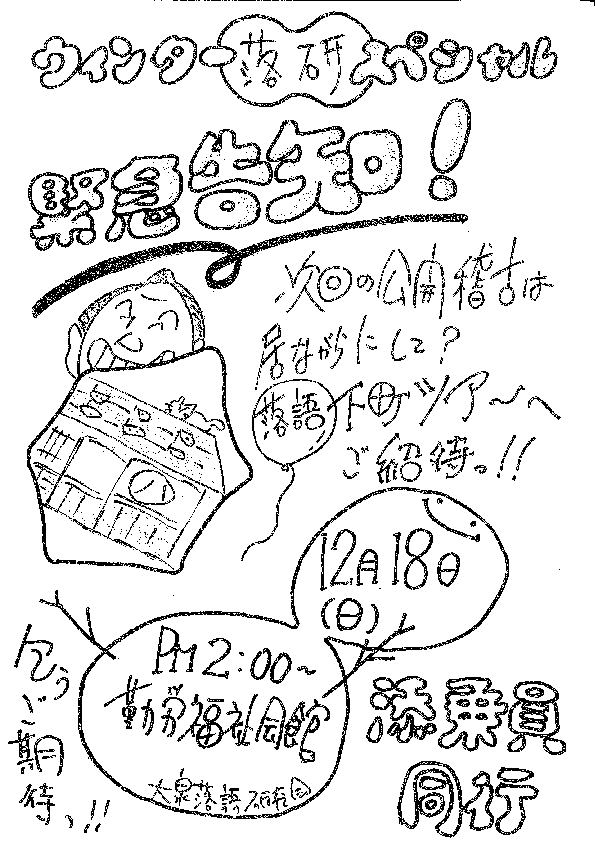 ウィンター落研スペシャル
緊急告知!
次回の公開稽古は
居ながらにして?
落語下町ツアー〜へ
ご紹待っ!!
12月18日
(日)
PM2:00〜
勤労福祉会館
大泉落語研究団
乞うご期待っ!!
添乗員
同行